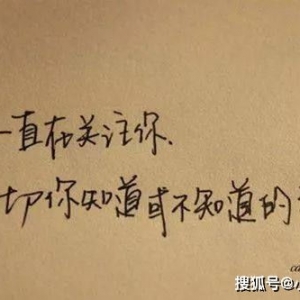 一直在关注你、
切你知道或不知道的
ca
搜狐号@